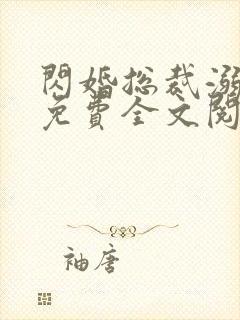 閃婚总裁溺
免費全文閱
袖唐